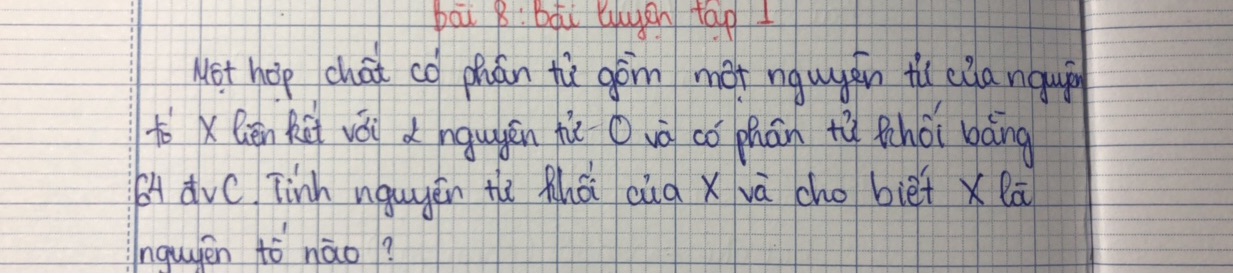 Bài 8: Bài luyện tập 1
Một hợp chất có phân tử gồm một nguyên tử của nguyên
tố X liên kết với 2 nguyên tử O và có phân tử khối bằng
64 đvC. Tính nguyên tử khối của X và cho biết X là
nguyên tố nào?